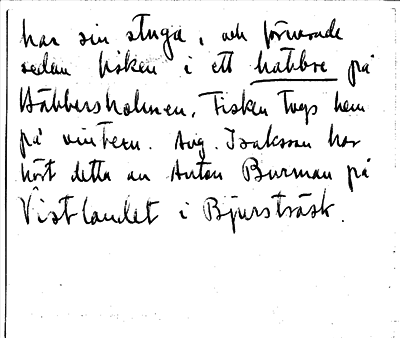 har sin stuga, och förvarade
sedan fisken i ett habbre på
Häbbersholmen. Fisken togs hem
på vintern. Aug. Isaksson har
hört detta av Anton Burman på
Vistlandet i Bjursträsk.